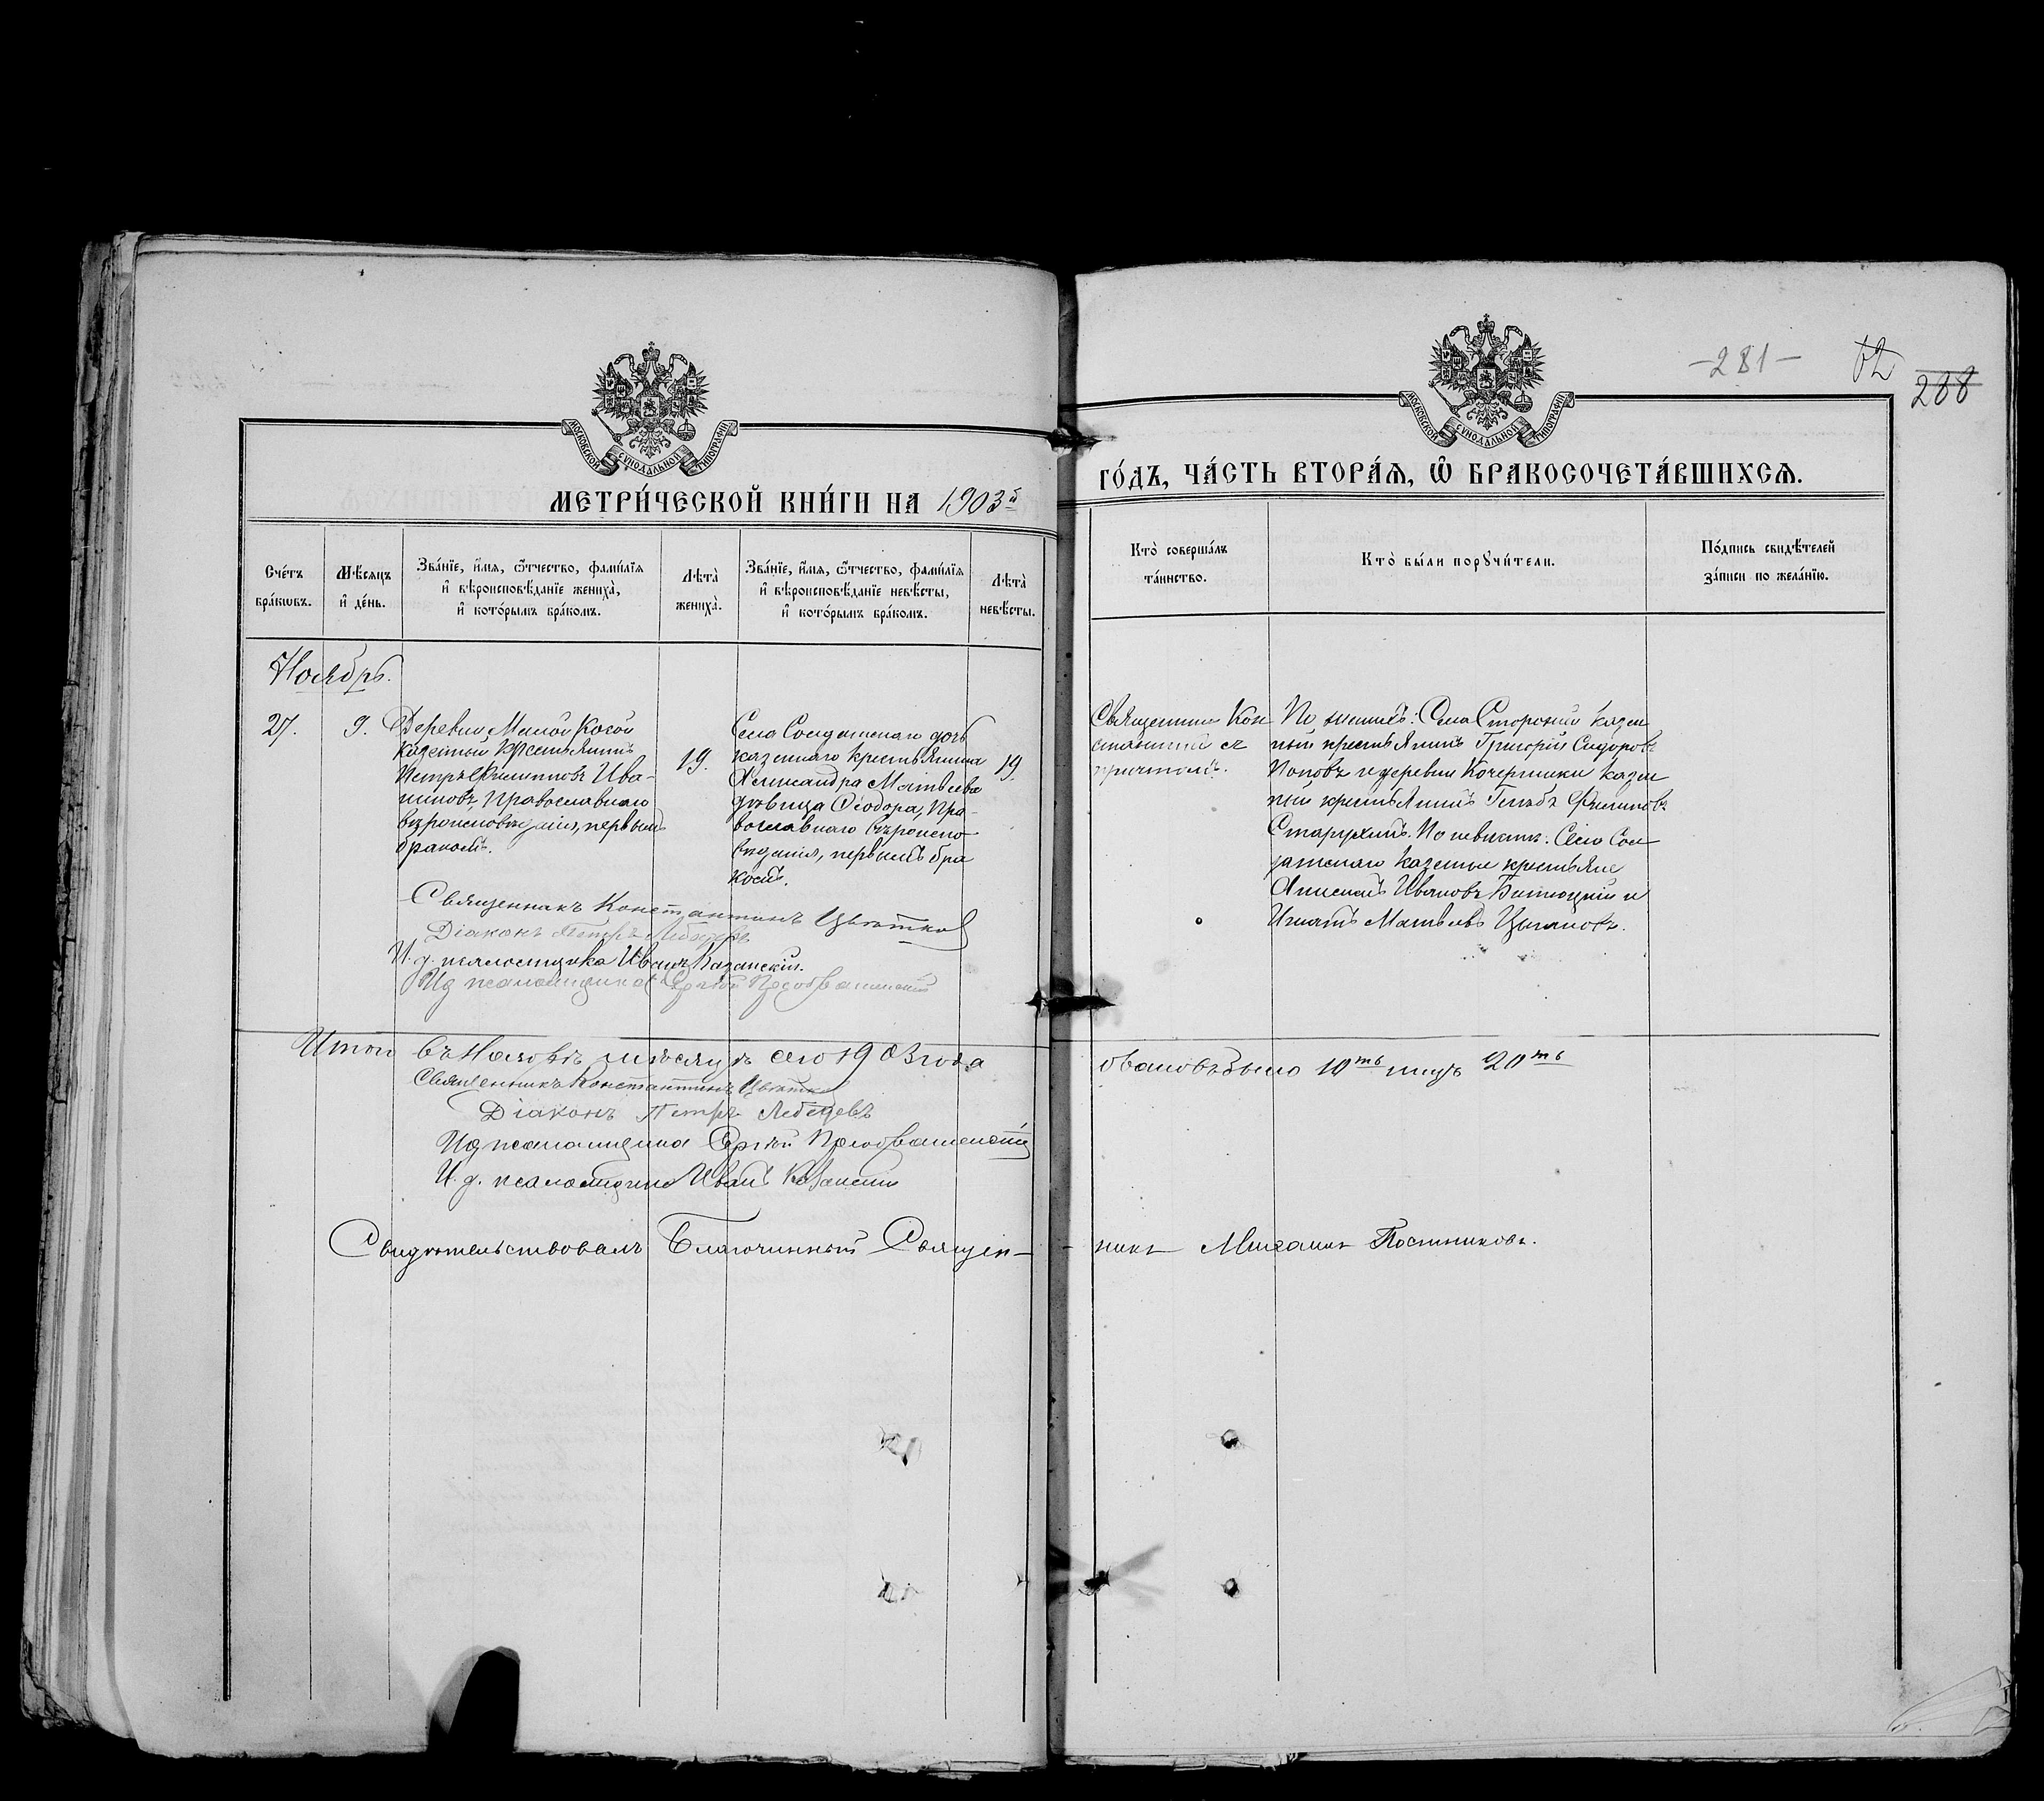 -281-
62
288
МОСКОВСКОЙ СѴНОДАЛЬНОЙ ТИПОГРАФІИ
МОСКОВСКОЙ СѴНОДАЛЬНОЙ ТИПОГРАФІИ
МЕТРИ́ЧЕСКОЙ КНИ́ГИ НА 1903й
ГО́ДЪ, ЧА́СТЬ ВТОРА́Я, Ѽ БРАКОСОЧЕТА́ВШИХСЯ.
Сче́тъ бра́кѡвъ.
Мѣ́сяцъ и҆ де́нь.
Зва́нїе, и҆́мя, ѻ҆́тчество, фами́лїя
и҆ вѣроисповѣ́данїе жениха̀,
и҆ кото́рымъ бра́комъ.
Лѣта̀ жениха̀.
Зва́нїе, и҆́мя, ѻ҆́тчество, фами́лїя
и҆ вѣроисповѣ́данїе невѣ́сты,
и҆ кото́рымъ бра́комъ.
Лѣта̀ невѣ́сты.
Кто̀ соверша́лъ
та́инство.
Кто̀ бы́ли порꙋчи́тели.
По́дпись свидѣ́телей
за́писи по жела́нїю.
Ноябрь.
27.
9.
Деревни Малой Косой
казенный крестьянинъ
Петръ Филипповъ Ива-
никовъ, православнаго
вѣроисповѣданія, первымъ
бракомъ.
19.
Села Солдатскаго дочь
казеннаго крестьянина
Александра Матвѣева
дѣвица Ѳеодора, Пра-
вославнаго вѣроиспо-
вѣданія, первымъ бра
комъ.
19.
Священникъ Кон
стантинъ съ
причтомъ.
По женихѣ: Села Сторожи казен
ный крестьянинъ Григорій Сидоровъ
Поповъ и деревни Кочережки казен
ный крестьянинъ Глѣбъ Филиповъ
Старухинъ. По невѣстѣ: Села Сол
датскаго казенные крестьяне
Алексѣй Ивановъ и
Игнатъ Матвѣевъ Цыгановъ.
Священникъ Константинъ Цвѣтков
Діаконъ Петръ Лебедевъ
И. д. псаломщика Иванъ Казанскій.
Ид псаломщика Сергѣй Преображенскій
Итого въ Ноябрѣ мѣсяцѣ сего 1903 года
браковъ было 10ть лицъ 20ть
Священникъ Константинъ Цвѣтков
Діаконъ Петръ Лебедевъ
Ид псаломщика Сергѣй Преображенскій
И. д. псаломщика Иванъ Казанскій
Свидѣтельствовалъ Благочинный Священ-
никъ Михаилъ Постниковъ.